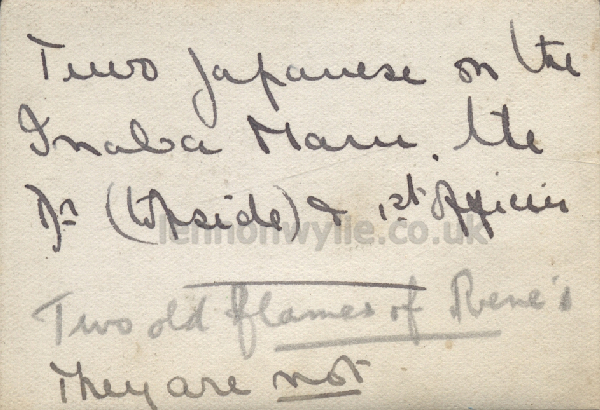 Two Japanese on the
Inaba Maru, the
Dr (topside) & 1st Officer
lennonwylie.co.uk
Two old flames of Rene's
They are not